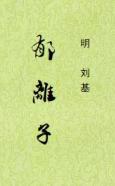 明 刘基
郁離子